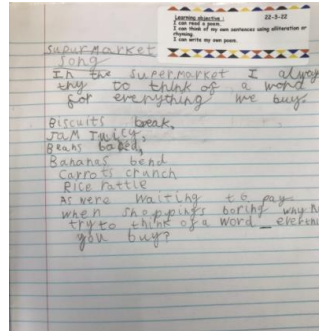 Learning objective :
22-3-22
I can read a poem.
I can think of my own sentences using alliteration or
rhyming.
I can write my own poem.
Supermarket
Song
In the supermarket I always
try to think of a word
for everything we buy.
Biscuits break,
Jam Juicy,
Beans baked,
Bananas bend
Carrots crunch
Rice Rattle
As were waiting to pay
when shoppings boring why
try to think of a word
you buy?